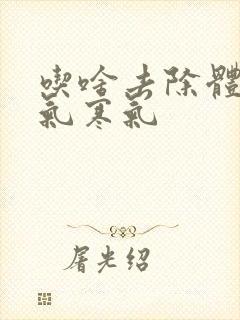 喫啥去除體
氣寒氣
屠光绍